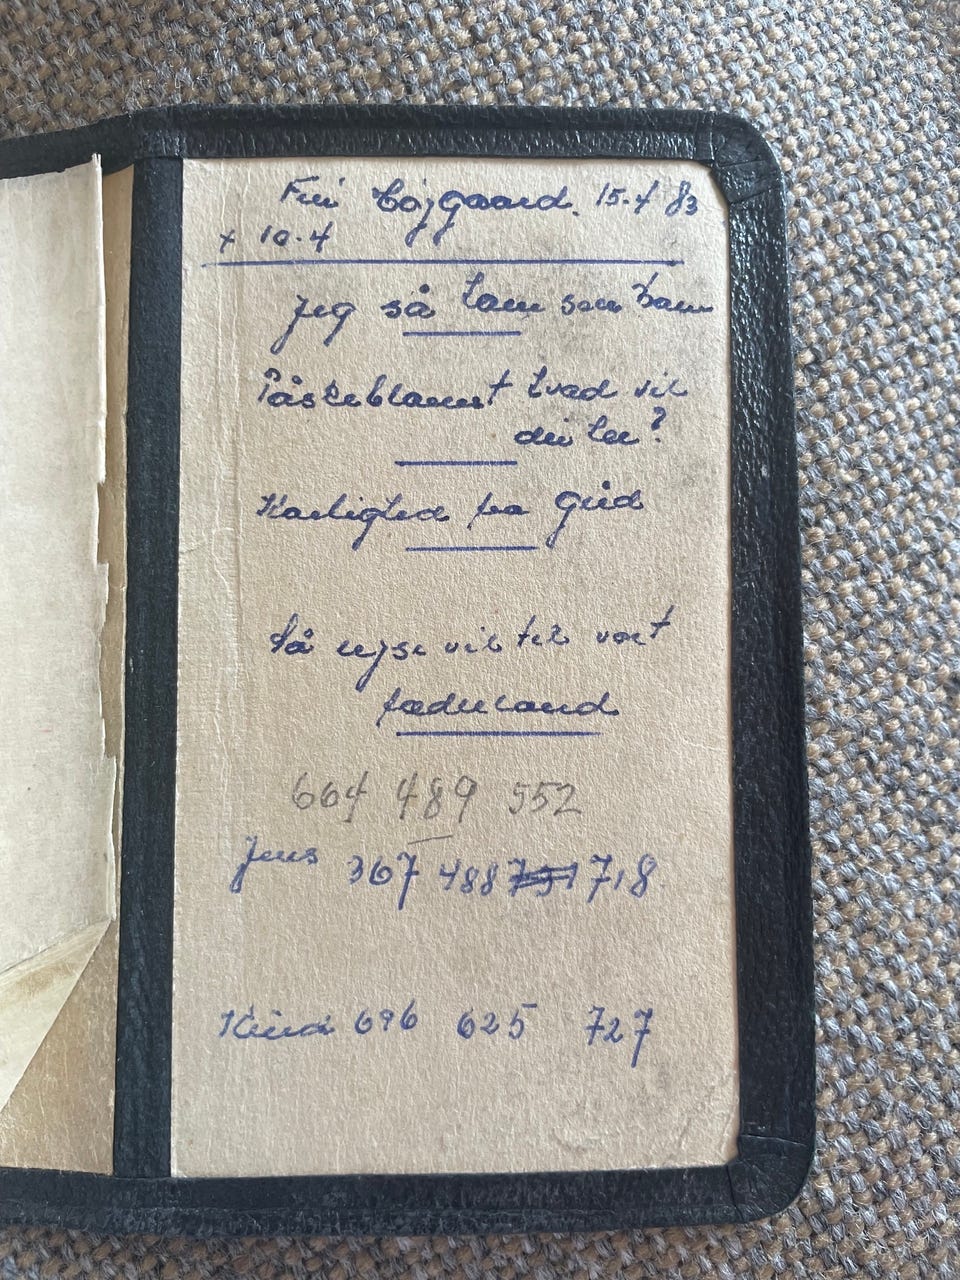 Højgaard. 15.4 83
+ 10.4
Jeg så ham som barn
Påskeblomst hvad vil
du her?
Kærlighed fra Gud
Så rejse vi til vort
fædreland
664 489 552
Jens 367 488 718
Knud 696 625 727